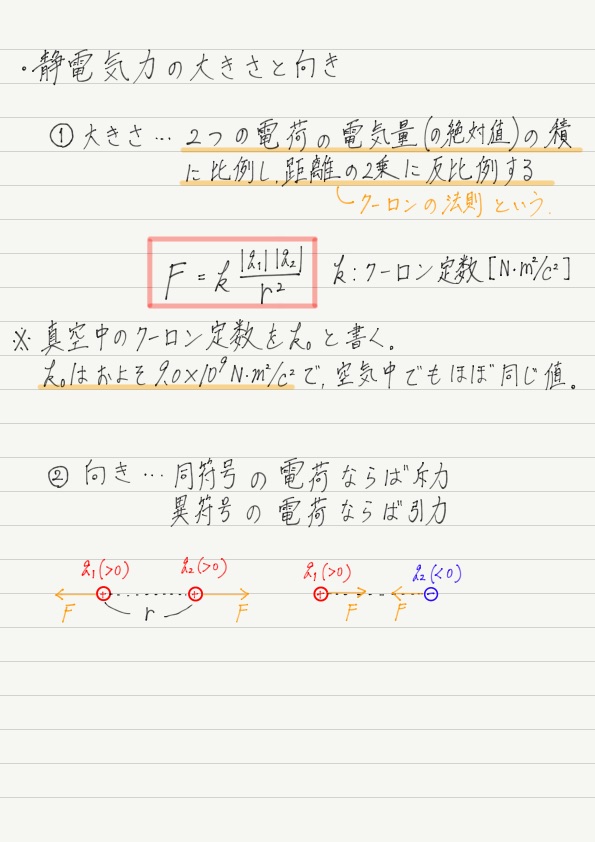 ・静電気力の大きさと向き
① 大きさ… 2つの電荷の電気量(の絶対値)の積
に比例し、距離の2乗に反比例する
クーロンの法則という.
F = k |q₁||q₂| / r² k:クーロン定数 [N・m²/c²]
※ 真空中のクーロン定数をk₀と書く。
k₀はおよそ9.0×10⁹N・m²/c²で、空気中でもほぼ同じ値。
② 向き… 同符号の電荷ならば斥力
異符号の電荷ならば引力
q₁(>0) q₂(>0) q₁(>0) q₂(<0)
+ + + −
F r F F F